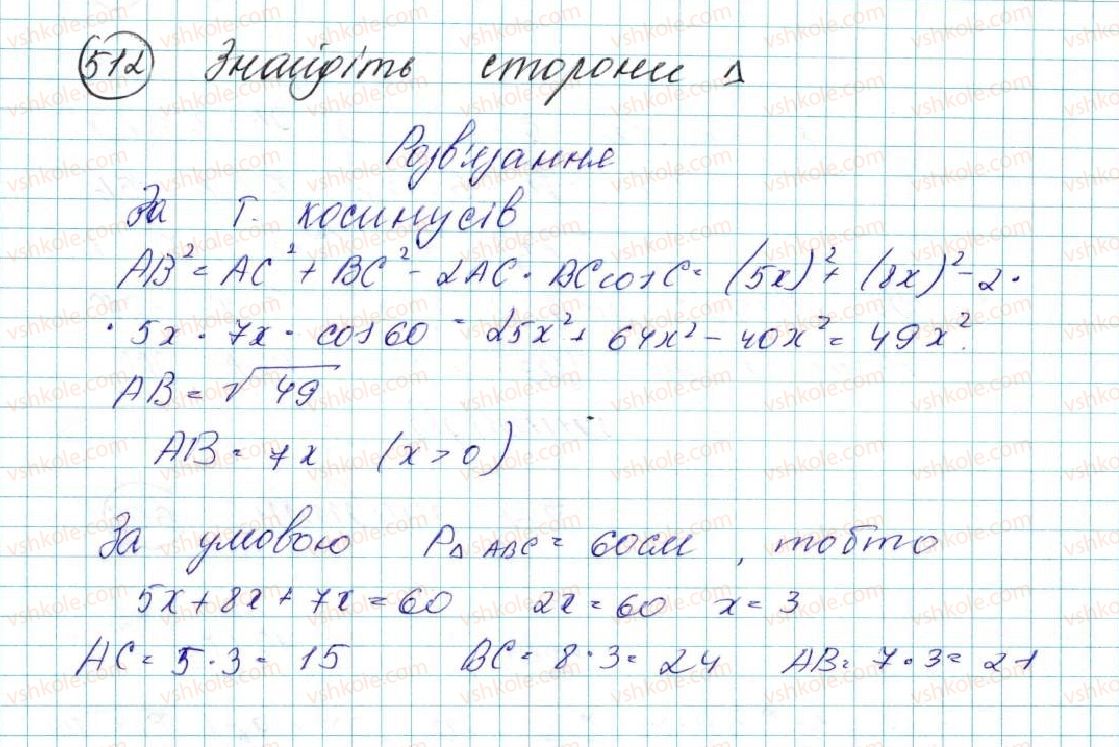 512 Знайдіть сторони Δ
Розв'язання
За т. косинусів
AB² = AC² + BC² - 2AC · BC cos C = (5x)² + (8x)² - 2 ·
· 5x · 7x · cos 60 = 25x² + 64x² - 40x² = 49x².
AB = √49
AB = 7x (x > 0)
За умовою P△ABC = 60см, тобто
5x + 8x + 7x = 60 2x = 60 x = 3
AC = 5 · 3 = 15 BC = 8 · 3 = 24 AB = 7 · 3 = 21
vshkole.com